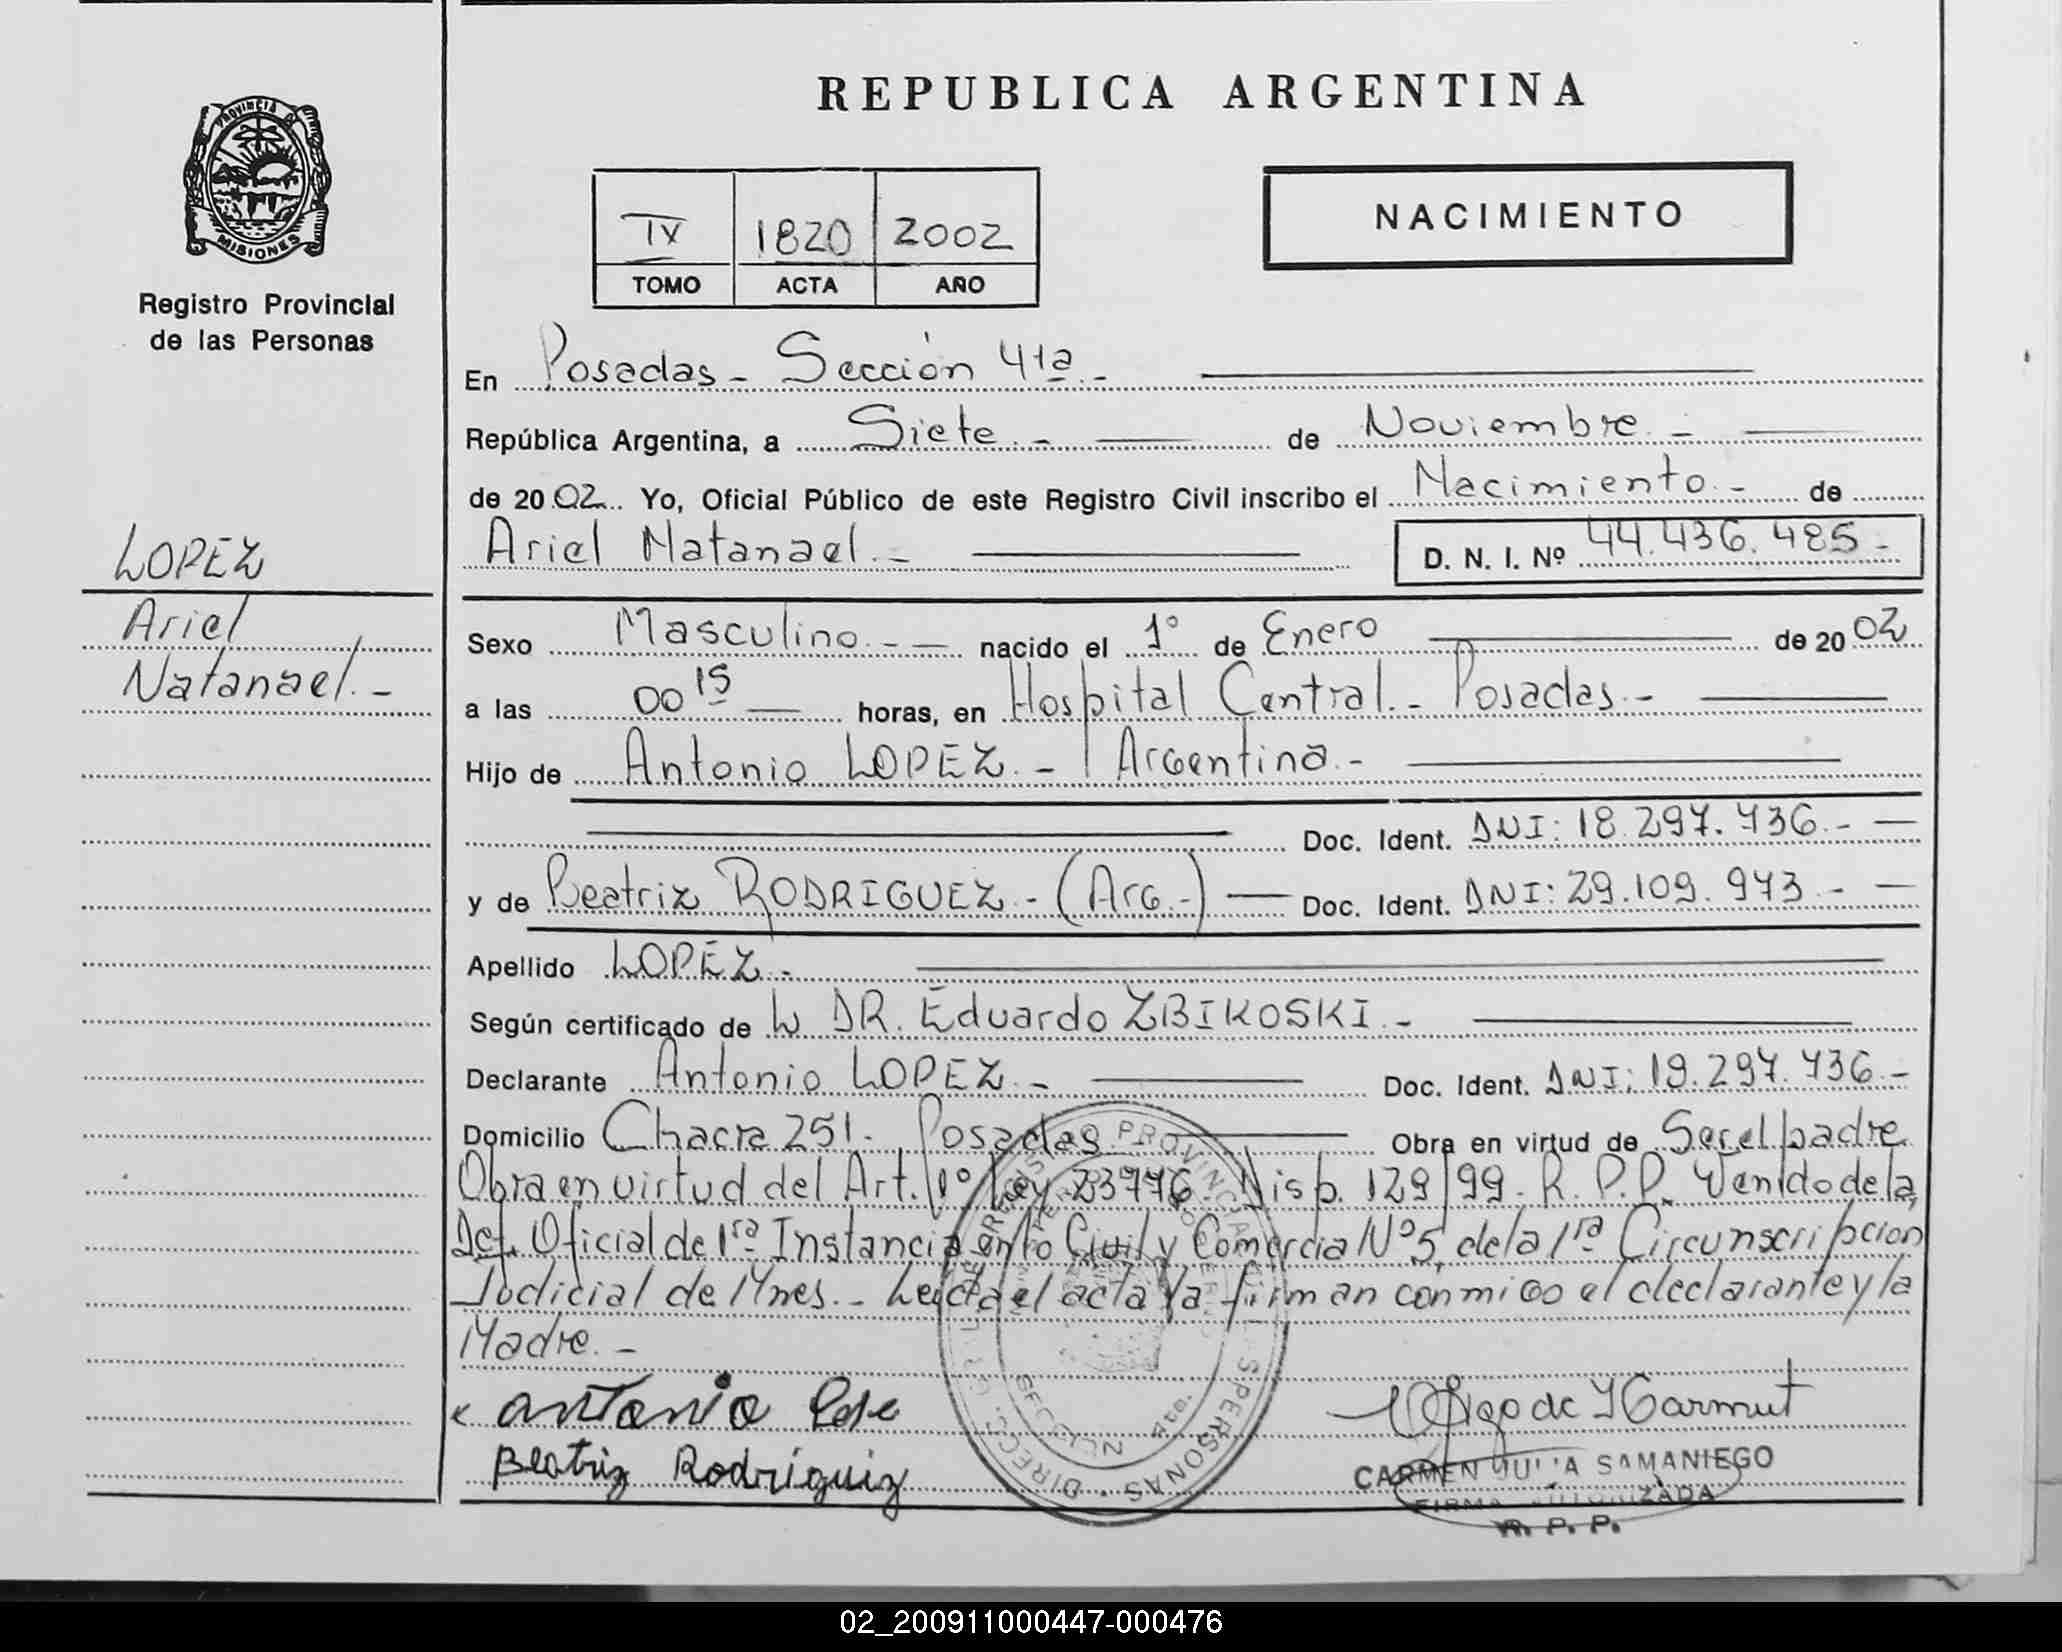 REPUBLICA ARGENTINA
PROVINCIA DE
MISIONES
Registro Provincial
de las Personas
NACIMIENTO
IV 1820 2002
TOMO ACTA AÑO
En Posadas - Sección 4ta -
República Argentina, a Siete - de Noviembre -
de 2002. Yo, Oficial Público de este Registro Civil inscribo el Nacimiento - de
Ariel Natanael. - D. N. I. Nº 44.436.485 -
LOPEZ
Ariel
Natanael. -
Sexo Masculino. - nacido el 1° de Enero de 2002
a las 00 15 horas, en Hospital Central. - Posadas. -
Hijo de Antonio LOPEZ. - Argentina. -
Doc. Ident. DNI: 18.297.736. -
y de Beatriz RODRIGUEZ. - (Arg.-) Doc. Ident. DNI: 29.109.973 -
Apellido LOPEZ. -
Según certificado de DR. Eduardo ZBIKOSKI. -
Declarante Antonio LOPEZ. - Doc. Ident. DNI: 19.297.736. -
Domicilio Chacra 251. Posadas Obra en virtud de Ser el padre
Obra en virtud del Art. 1° Ley 23776. Disp. 129/99. R. P. P. Venido de la
Def. Oficial de 1ra Instancia en lo Civil y Comercial Nº 5, de la 1ra Circunscripcion
Judicial de Mnes. - Leida el acta la firman conmigo el declarante y la
Madre. -
Antonio
Beatriz Rodriguiz
CARMEN JULIA SAMANIEGO
FIRMA AUTORIZADA
R. P. P.
02_200911000447-000476